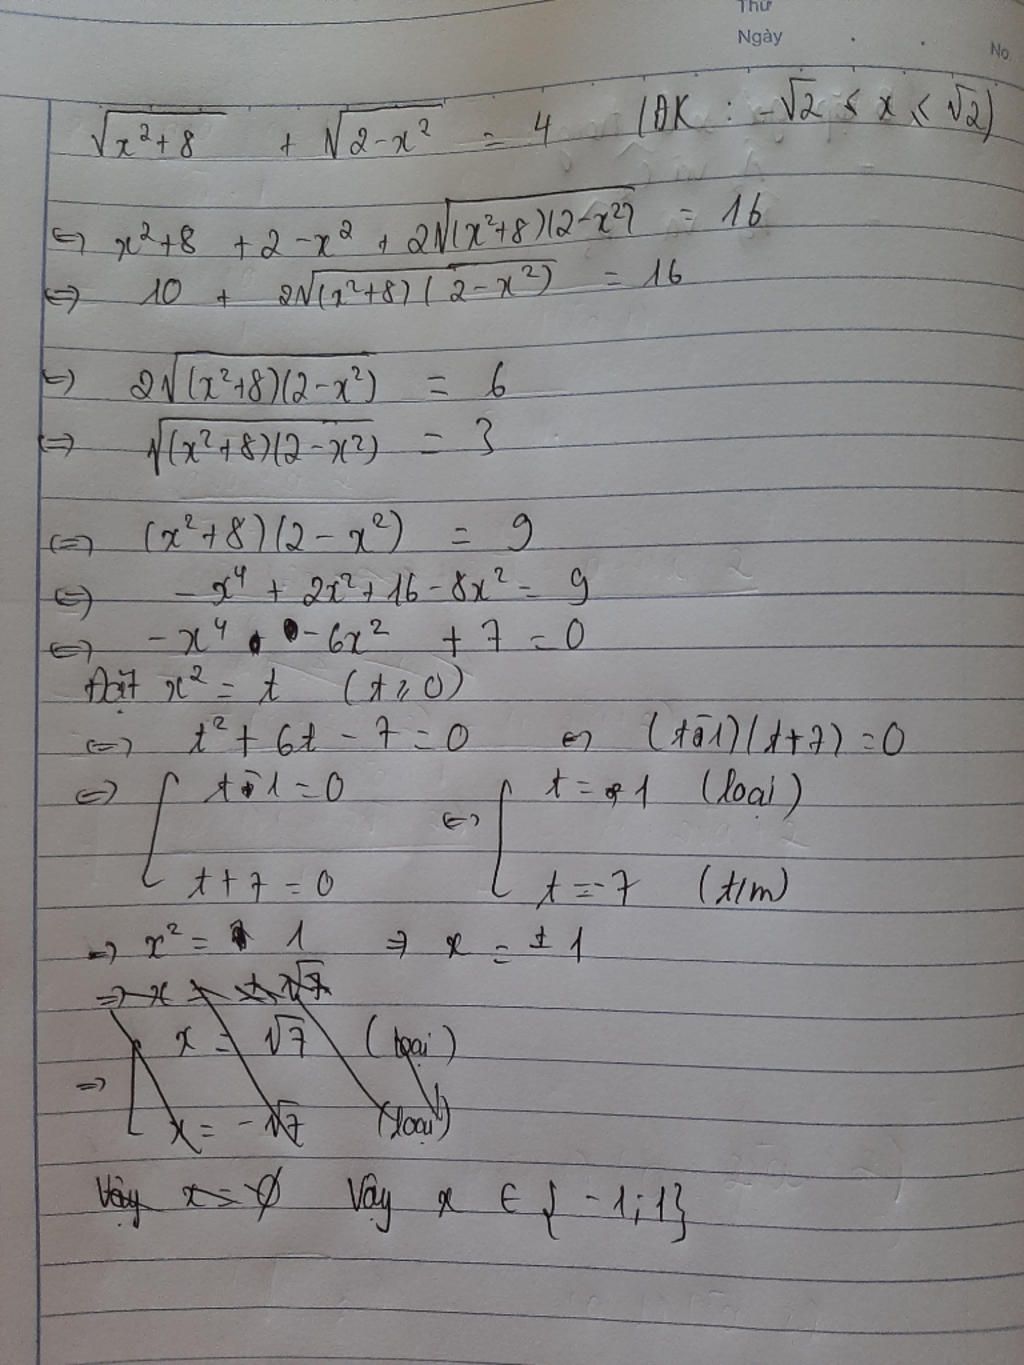 Thứ
Ngày
No
√(x²+8) + √(2-x²) = 4 (ĐK : -√2 ≤ x ≤ √2)
⇔ x²+8 + 2-x² + 2√((x²+8)(2-x²)) = 16
⇔ 10 + 2√((x²+8)(2-x²)) = 16
⇔ 2√((x²+8)(2-x²)) = 6
⇔ √((x²+8)(2-x²)) = 3
⇔ (x²+8)(2-x²) = 9
⇔ -x⁴ + 2x² + 16 - 8x² = 9
⇔ -x⁴ - 6x² + 7 = 0
Đặt x² = t (t ≥ 0)
⇔ t² + 6t - 7 = 0 ⇔ (t-1)(t+7) = 0
⇔ [ t-1 = 0 ⇔ [ t = 1 (loại)
t+7 = 0 t = -7 (t/m)
⇒ x² = 1 ⇒ x = ± 1
⇒ x = ± √7
⇒ [ x = √7 (loại)
x = -√7 (loại)
Vậy x = ∅ Vậy x ∈ {-1;1}